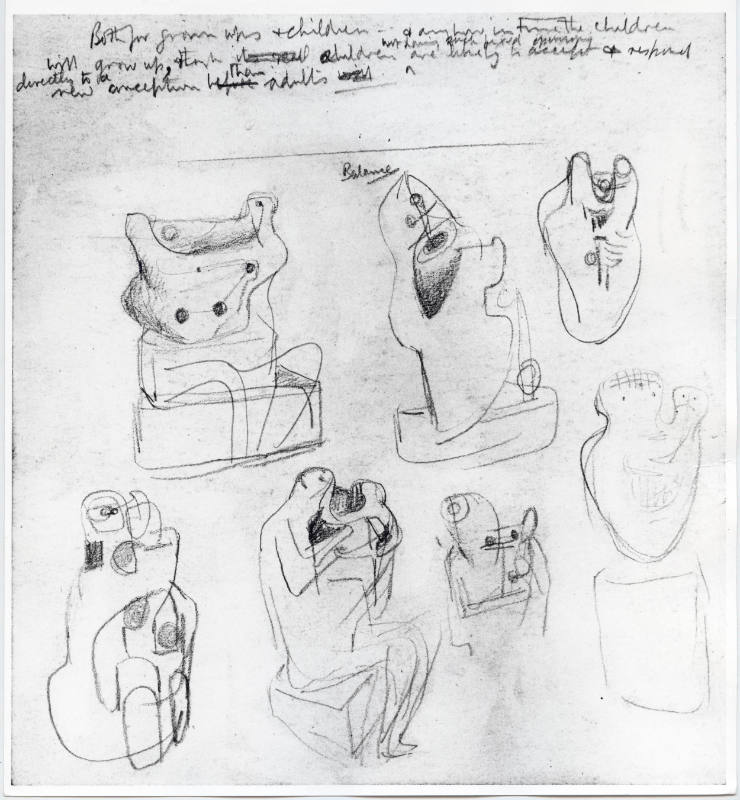 Both for grown ups & children — & anyhow in time the children
will grow up, & though it ~~is~~ children not having such fixed opinions are likely to accept & respond
directly to a
new conception ~~before~~ than adults
Balance